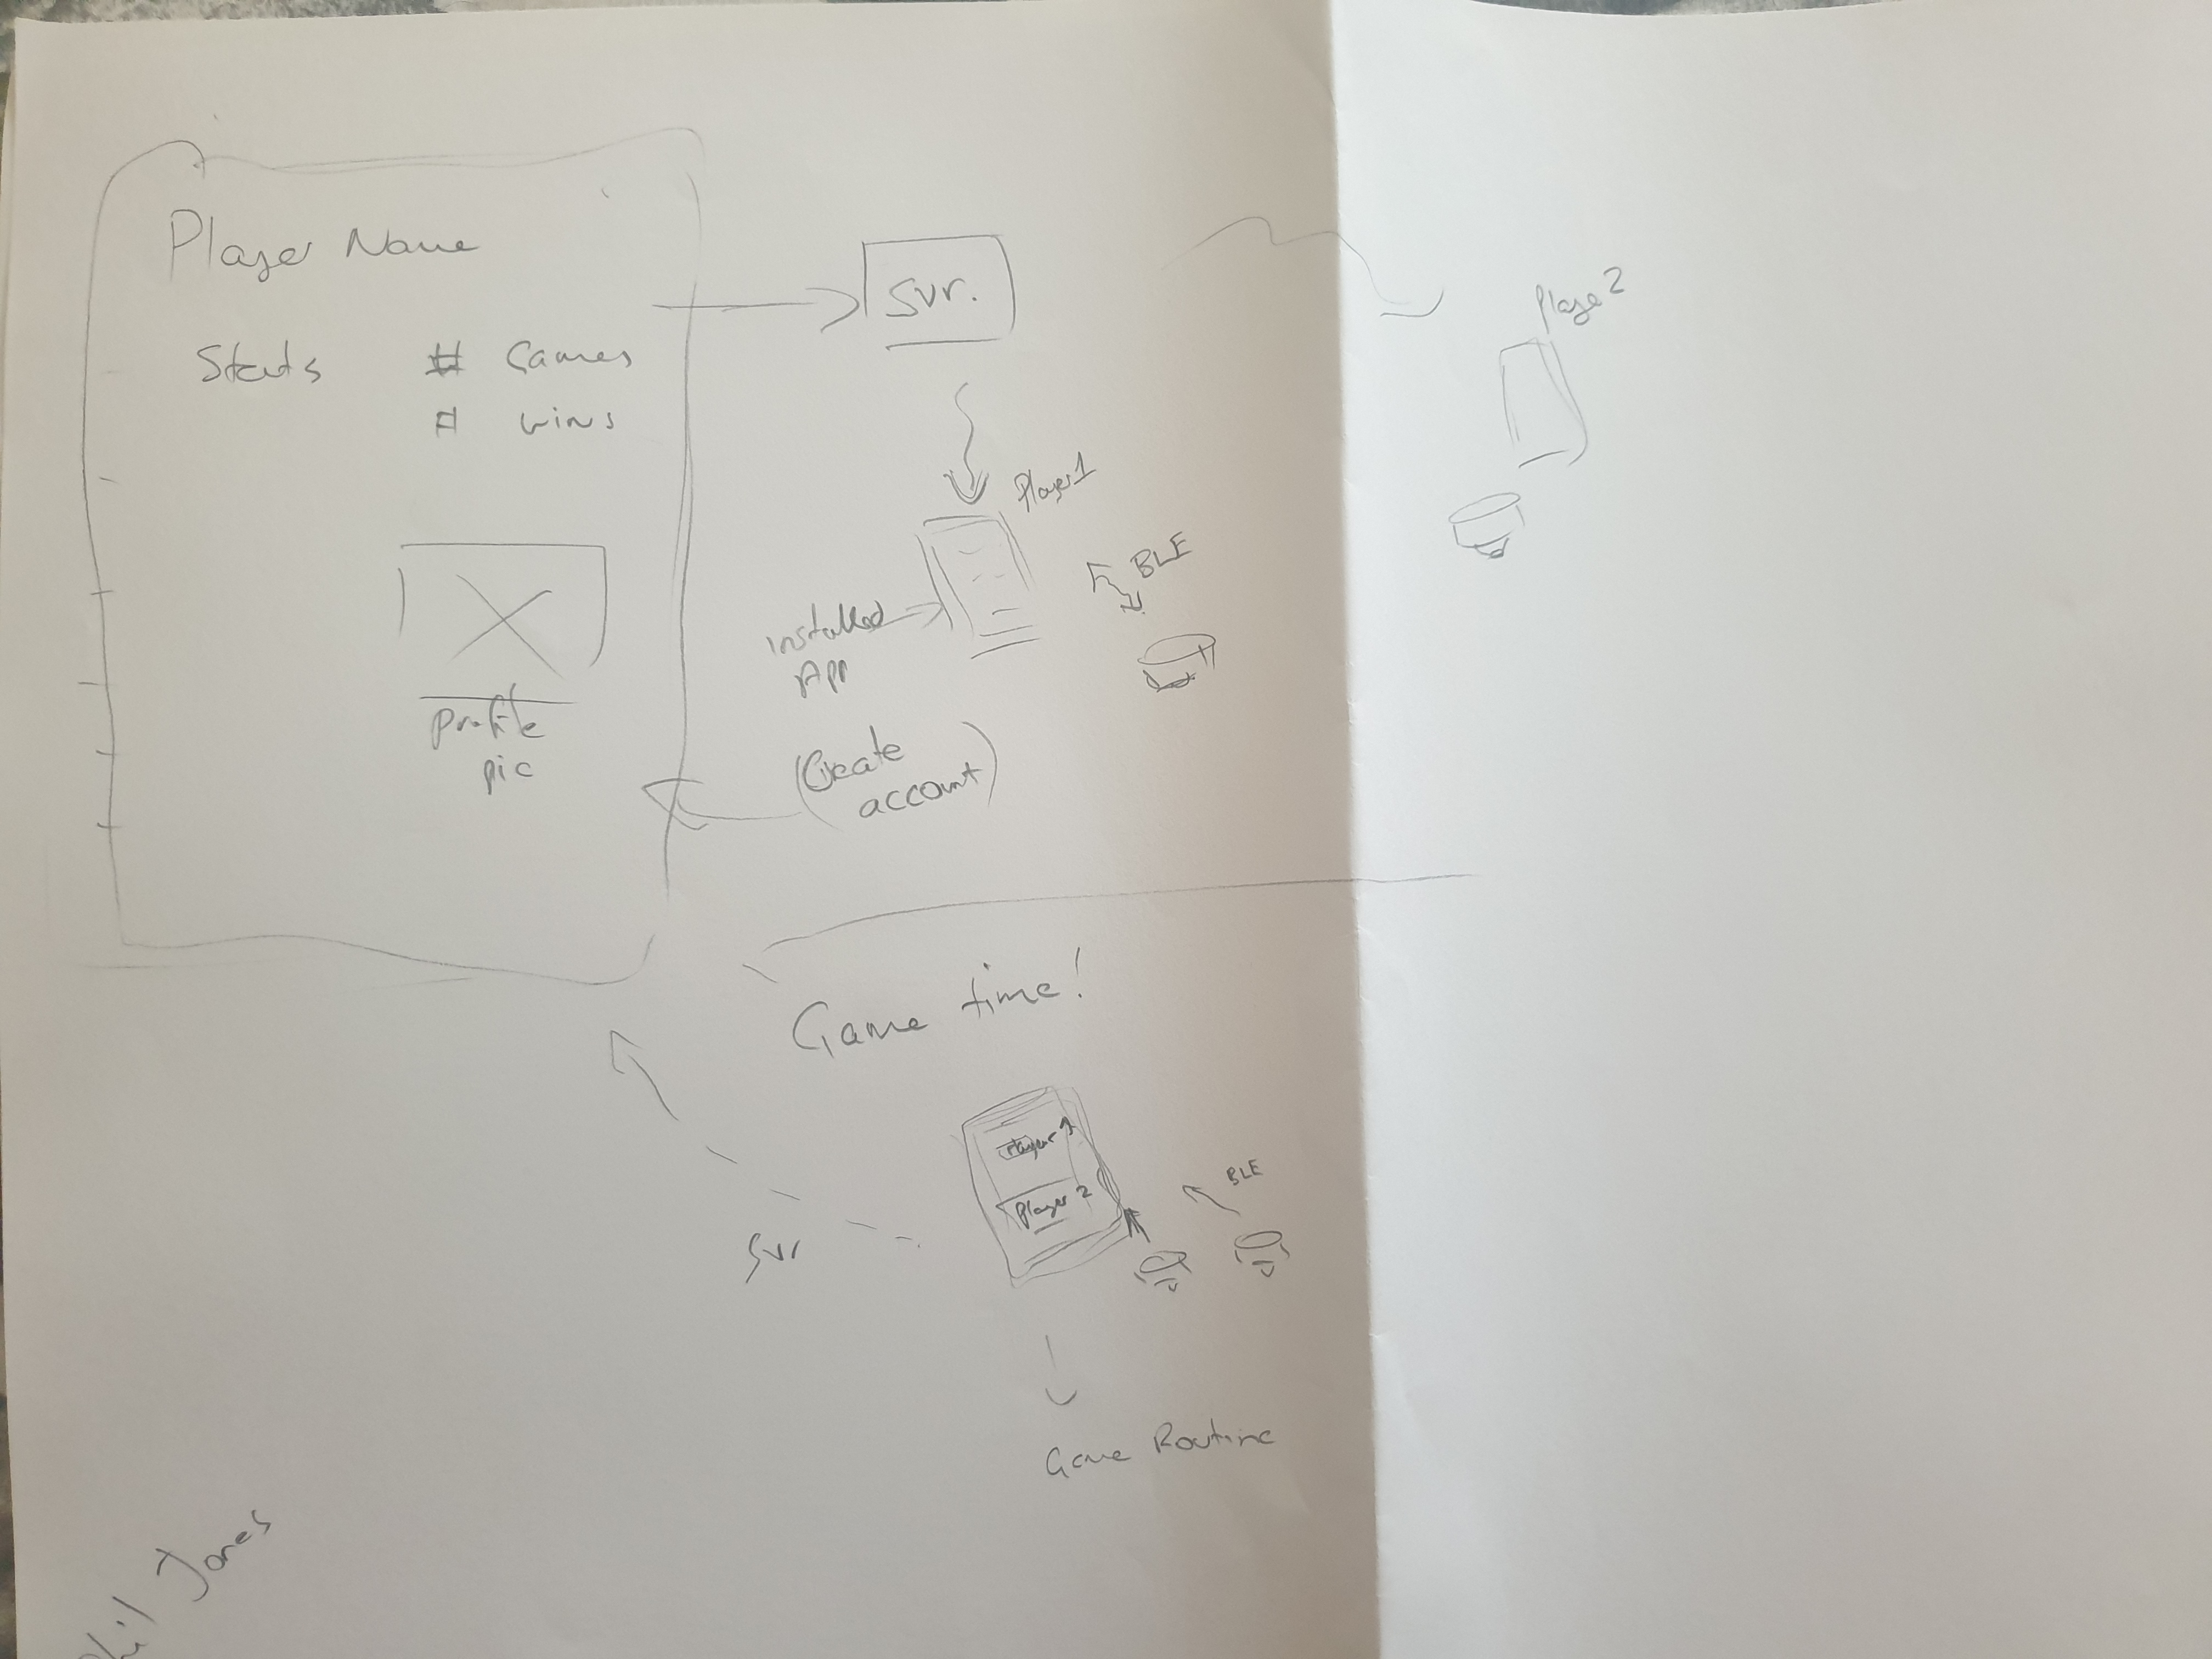 Player Name
Stats # Games
# wins
profile
pic
svr.
Player 1
BLE
installed
App
(Create
account)
Player 2
Game time!
Player 1
Player 2
BLE
svr
Game Routine
Phil Jones